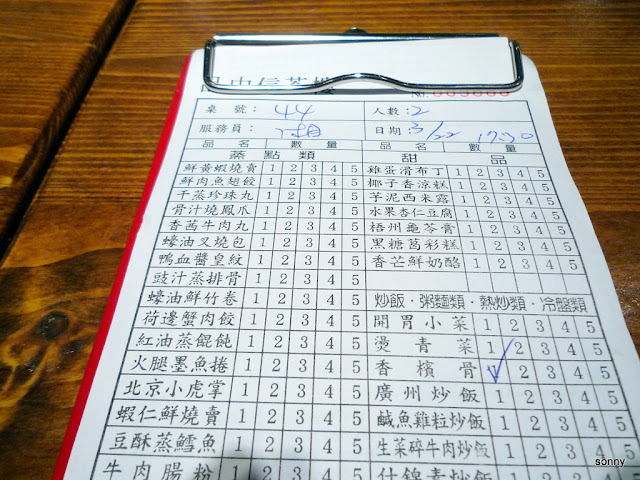 NO.
桌號： 44 人數：2
服務員： 日期：3/22 1730
品名 數量 品名 數量
蒸點類 甜品
鮮黃蝦燒賣 1 2 3 4 5 雞蛋滑布丁 1 2 3 4 5
鮮肉魚翅餃 1 2 3 4 5 椰子香涼糕 1 2 3 4 5
干蒸珍珠丸 1 2 3 4 5 芋泥西米露 1 2 3 4 5
骨汁燒鳳爪 1 2 3 4 5 水果杏仁豆腐 1 2 3 4 5
香茜牛肉丸 1 2 3 4 5 梧州龜苓膏 1 2 3 4 5
蠔油叉燒包 1 2 3 4 5 黑糖葛彩糕 1 2 3 4 5
鴨血醬皇紋 1 2 3 4 5 香芒鮮奶酪 1 2 3 4 5
豉汁蒸排骨 1 2 3 4 5
蠔油鮮竹卷 1 2 3 4 5 炒飯·粥麵類·熱炒類·冷盤類
荷邊蟹肉餃 1 2 3 4 5 開胃小菜 1 2 3 4 5
紅油蒸餛飩 1 2 3 4 5 燙青菜 1 2 3 4 5
火腿墨魚捲 1 2 3 4 5 香檳骨 1 2 3 4 5
北京小虎掌 1 2 3 4 5 廣州炒飯 1 2 3 4 5
蝦仁鮮燒賣 1 2 3 4 5 鹹魚雞粒炒飯 1 2 3 4 5
豆酥蒸鱈魚 1 2 3 4 5 生菜碎牛肉炒飯 1 2 3 4 5
牛肉腸粉 1 2 3 4 5 什錦素炒飯 1 2 3 4 5
sonny